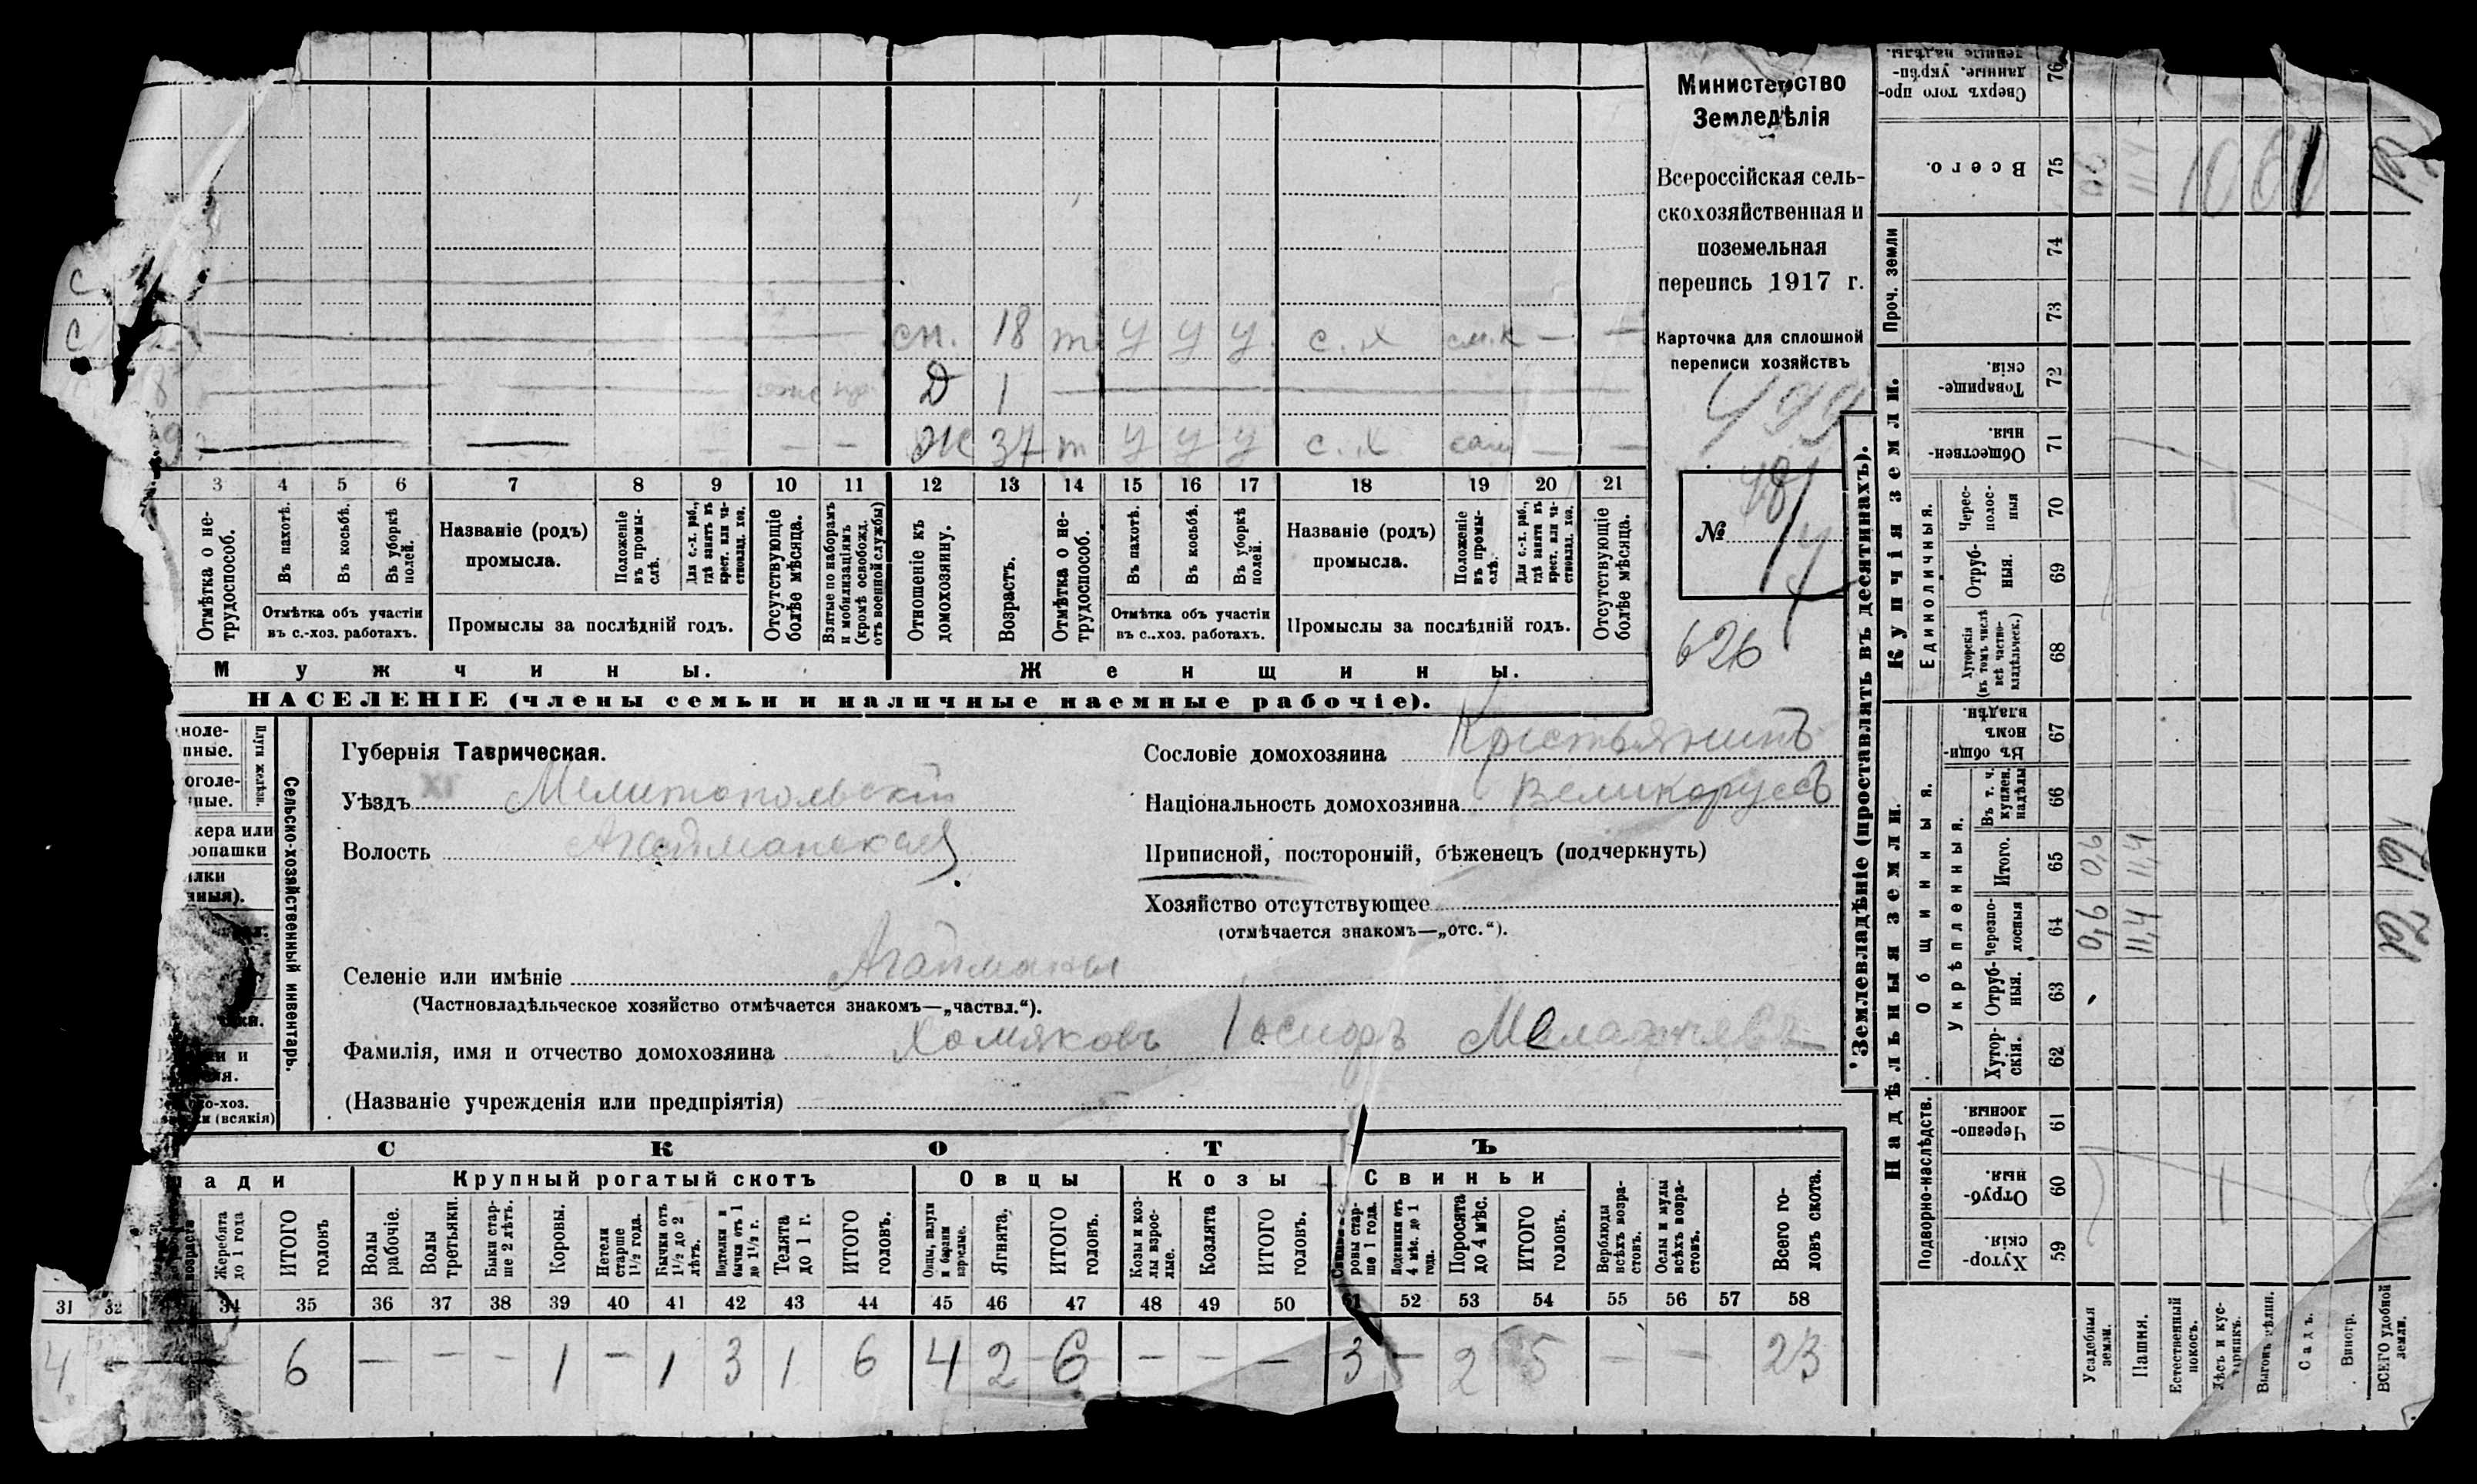 Министерство
Земледѣлія
Всероссійская сель-
скохозяйственная и
поземельная
перепись 1917 г.
Карточка для сплошной
переписи хозяйствъ
499
№ 48/4
626
С
С
сп. 18 т у у у с. х см.к — —
8 Д 1
9 — — — — Ж 37 т у у у с. х сам — —
3 4 5 6 7 8 9 10 11 12 13 14 15 16 17 18 19 20 21
Отмѣтка о не-
трудоспособ.
Въ пахотѣ.
Въ косьбѣ.
Въ уборкѣ
полей.
Отмѣтка объ участіи
въ с.-хоз. работахъ.
Названіе (родъ)
промысла.
Положеніе
въ промы-
слѣ.
Для с.-х. раб.,
гдѣ занятъ въ
крест. или ча-
стновлад. хоз.
Промыслы за послѣдній годъ.
Отсутствующіе
болѣе мѣсяца.
Взятые по наборамъ
и мобилизаціямъ
(кромѣ освобожд.
отъ военной службы)
Отношеніе къ
домохозяину.
Возрастъ.
Отмѣтка о не-
трудоспособ.
Въ пахотѣ.
Въ косьбѣ.
Въ уборкѣ
полей.
Отмѣтка объ участіи
въ с..хоз. работахъ.
Названіе (родъ)
промысла.
Положеніе
въ промы-
слѣ.
Для с.-х. раб.,
гдѣ занята въ
крест. или ча-
стновлад. хоз.
Промыслы за послѣдній годъ.
Отсутствующіе
болѣе мѣсяца.
Мужчины.
Женщины.
НАСЕЛЕНІЕ (члены семьи и наличные наемные рабочіе).
Плуги желѣзн.
Сельско-хозяйственный инвентарь.
кера или
(всякія)
Губернія Таврическая.
Уѣздъ Мелитопольскій
Волость Агайманская
Сословіе домохозяина Крестьянинъ
Національность домохозяина Великоруссъ
Приписной, посторонній, бѣженецъ (подчеркнуть)
Хозяйство отсутствующее
(отмѣчается знакомъ—„отс.“).
Селеніе или имѣніе Агайманы
(Частновладѣльческое хозяйство отмѣчается знакомъ—„частвл.“).
Фамилія, имя и отчество домохозяина Хомяковъ Іосифъ Малафѣевъ
(Названіе учрежденія или предпріятія)
СКОТЪ
ади
Крупный рогатый скотъ
Овцы
Козы
Свиньи
возраста
Жеребята
до 1 года
ИТОГО
головъ
Волы
рабочіе.
Волы
третьяки.
Быки стар-
ше 2 лѣтъ.
Коровы.
Нетели
старше
1½ года.
Бычки отъ
1½ до 2
лѣтъ.
Потелки и
бычки отъ 1
до 1½ г.
Телята
до 1 г.
ИТОГО
головъ.
Овцы, валухи
и бараны
взрослые.
Ягнята.
ИТОГО
головъ.
Козы и коз-
лы взрос-
лые.
Козлята
ИТОГО
головъ.
Свиньи и бо-
ровы стар-
ше 1 года.
Подсвинки отъ
4 мѣс. до 1
года.
Поросята
до 4 мѣс.
ИТОГО
головъ.
Верблюды
всѣхъ возра-
стовъ.
Ослы и мулы
всѣхъ возра-
стовъ.
Всего го-
ловъ скота.
31 32 34 35 36 37 38 39 40 41 42 43 44 45 46 47 48 49 50 51 52 53 54 55 56 57 58
4 — — 6 — — — 1 — 1 3 1 6 4 2 6 — — — 3 — 2 5 — — 23
Землевладѣніе (проставлять въ десятинахъ).
Надѣльныя земли.
Купчія земли.
Проч. земли
Подворно-наслѣдств.
Общинныя.
Укрѣпленныя.
Единоличныя.
Хутор-
скія.
Отруб-
ныя.
Черезпо-
лосныя.
Хутор-
скія.
Отруб-
ныя.
Черезпо-
лосныя
Итого.
Въ т. ч.
куплен.
надѣлы
Въ общин-
номъ
владѣн.
Хуторскія
(въ томъ числѣ
всѣ частно-
владѣльческ.)
Отруб-
ныя.
Черес-
полос-
ныя
Обществен-
ныя.
Товарище-
скія.
Всего.
Сверхъ того про-
данные. укрѣп-
ленные надѣлы.
59 60 61 62 63 64 65 66 67 68 69 70 71 72 73 74 75 76
Усадебныя
земли. 0,6 0,6 06
Пашня. 11,4 11,4 11,4
Естественный
покосъ.
Лѣсъ и кус-
тарникъ.
Выгонъ
Садъ.
Виногр.
ВСЕГО удобной
земли. 12 12 12